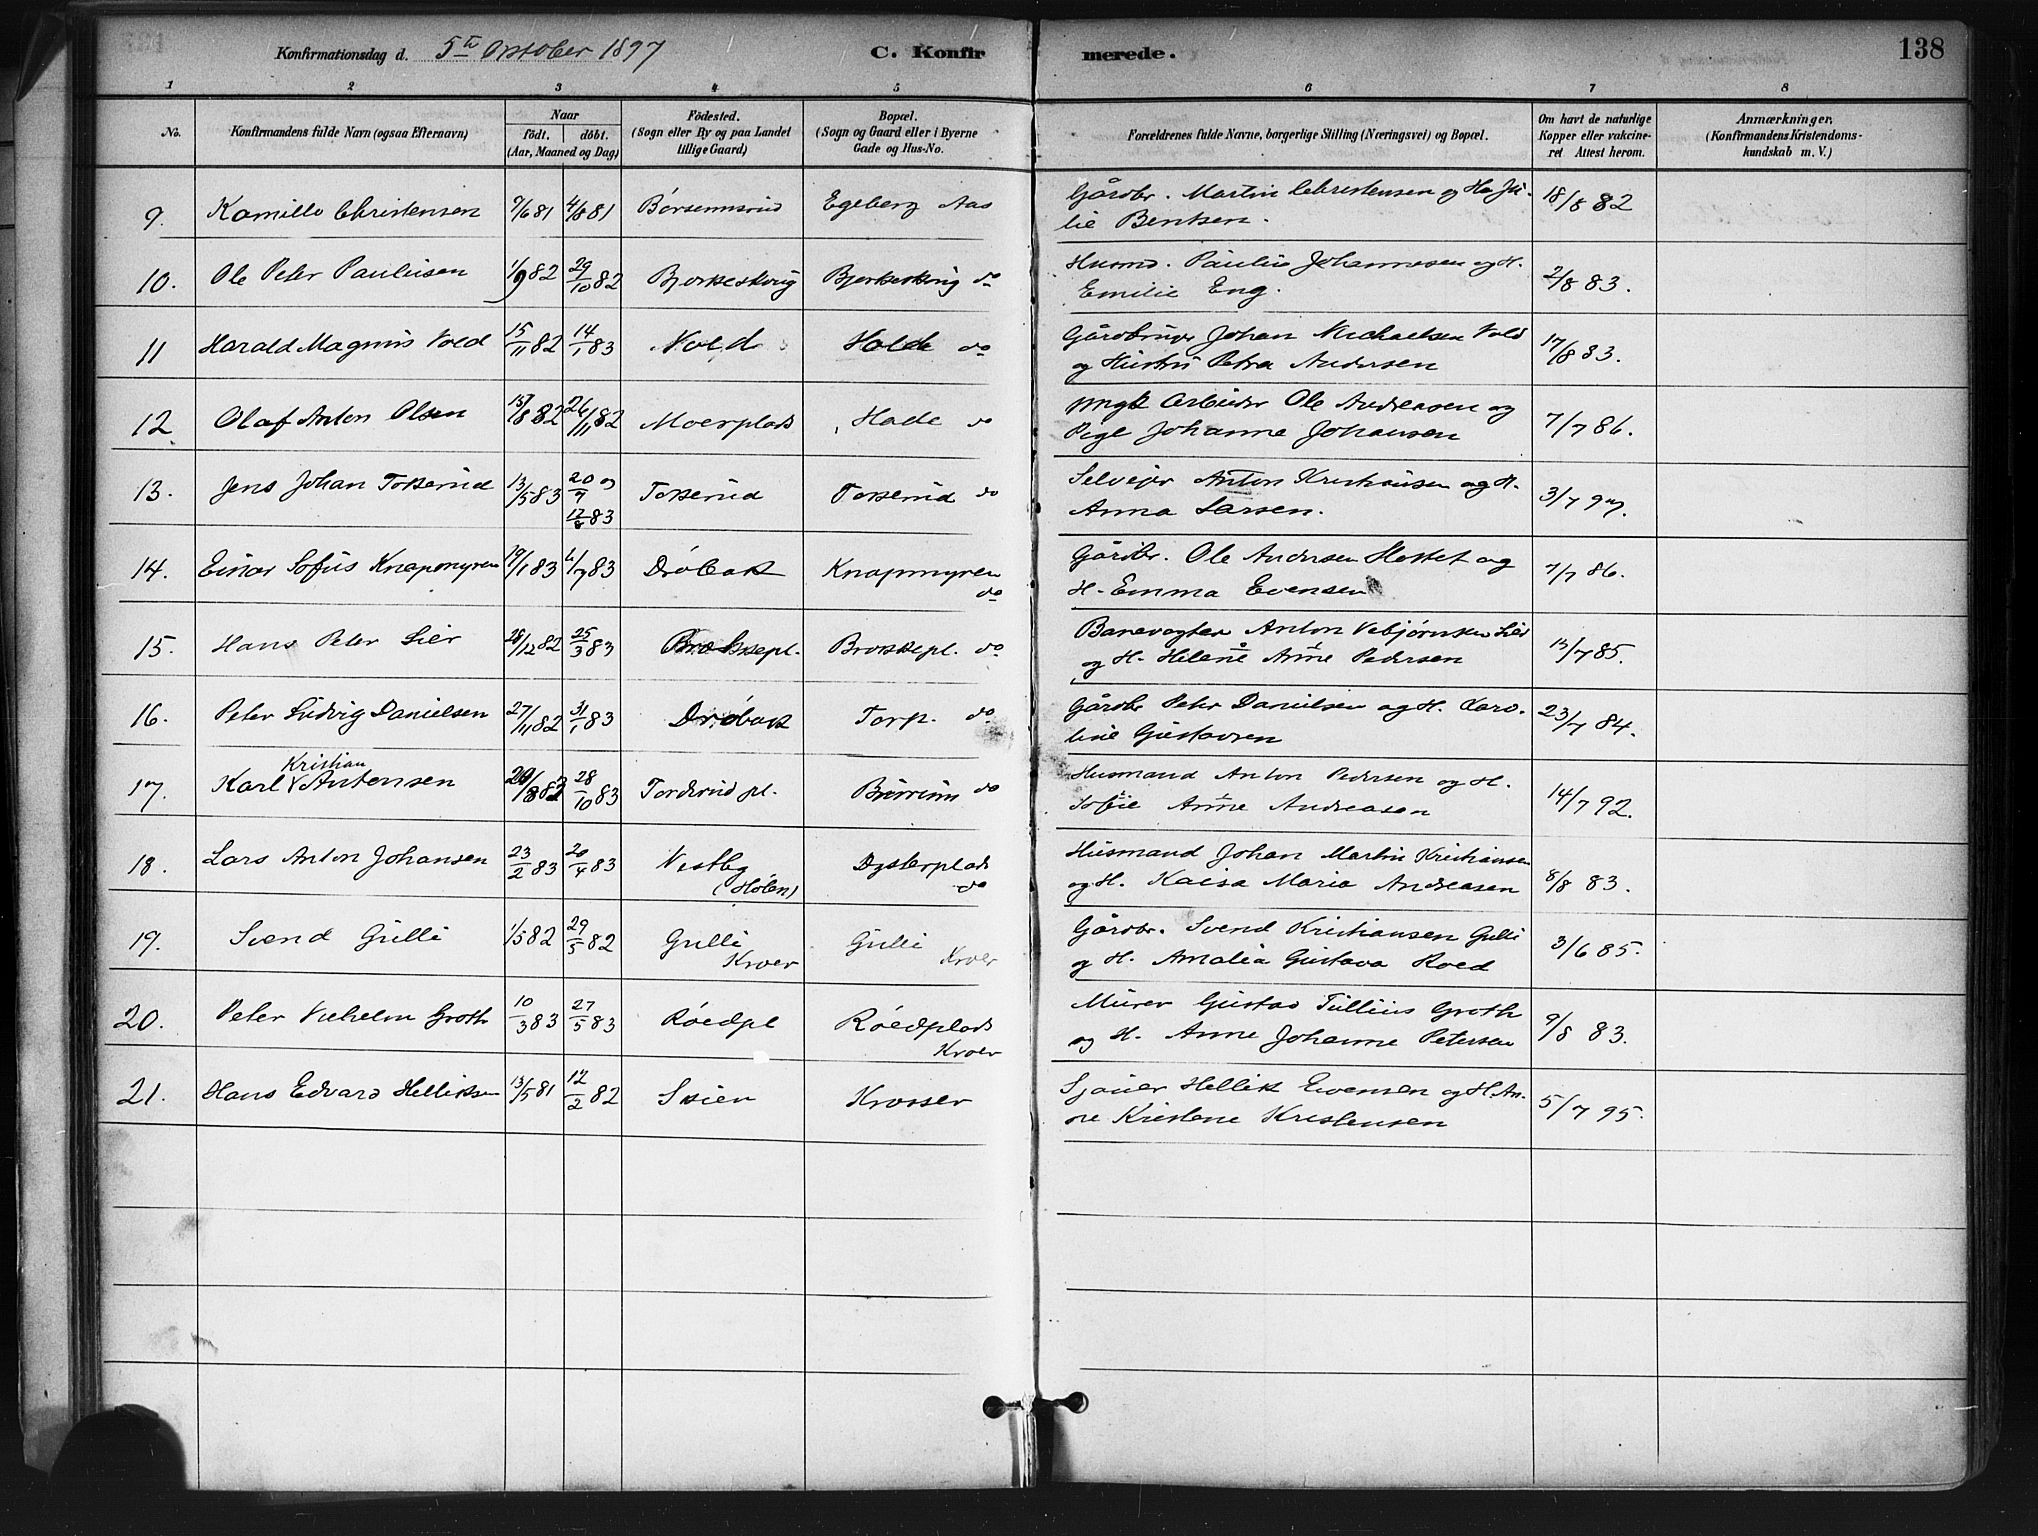 Konfirmationsdag d. 5te October 1897
C. Konfirmerede.
138
1 2 3 4 5 6 7 8
No.
Konfirmandens fulde Navn (ogsaa Efternavn)
Naar
födt. döbt.
(Aar, Maaned og Dag)
Födested.
(Sogn eller By og paa Landet
tillige Gaard)
Bopæl.
(Sogn og Gaard eller i Byerne
Gade og Hus-No.
Forældrenes fulde Navne, borgerlige Stilling (Næringsvei) og Bopæl.
Om havt de naturlige
Kopper eller vakcine-
ret Attest herom.
Anmærkninger,
(Konfirmandens Kristendoms-
kundskab m. V.)
9. Kamillo Christensen 7/6 81 4/8 81 Egeberg Aas
Gårdbr. Martin Christensen og H. Ju-
lie Bentsen. 18/8 82
10. Ole Peter Paulusen 1/9 82 29/10 82 Bjorkeskoug Bjerkeskoug do
Husmd. Paulus Johannesen og H.
Emilie Eng. 2/8 83.
11 Harald Magnus Vold 15/11 82 14/1 83 Vold Holde do
Gårdbruger Johan Michaelsen Vold
og Hustru Petra Andersen 17/8 83.
12 Olaf Anton Olsen 15/8 82 26/11 82 Moerplads Hade do
Ungk Arbeider Ole Andreasen og
Pige Johanne Johansen 7/7 86.
13. Jens Johan Tokserud 13/5 83 20/7 og
12/8 83 Tokserud Tokserud do
Selveier Anton Kristiansen og H.
Anna Larsen. 3/7 97.
14. Einar Sofus Knapmyren 19/1 83 4/7 83 Dröbak Knapmyren
do
Gårdbr. Ole Andersen Hottet og
H. Emma Evensen 7/7 86.
15. Hans Peter Lier 28/12 82 25/3 83 Brækkepl. Brækkepl. do
Banevogter Anton Vebjørnsen Lier
og H. Helene Anne Pedersen 13/7 85.
16. Peter Ludvig Danielsen 27/11 82 31/1 83 Dröbak Torp. do
Gårdbr Peter Danielsen og H. Karo-
line Gustavsen 23/7 84.
17. Kristian
Karl V Antonsen 28/10 83 Torderud pl. do
Husmand Anton Pedersen og H.
Sofie Anne Andreasen 14/7 92.
18. Lars Anton Johansen 23/2 83 20/4 83 Vestby
(Hölen) Dysterplads
do
Husmand Johan Martin Kristiansen
og H. Kaisa Maria Andreasen 8/8 83.
19. Svend Gulli 1/5 82 29/5 82 Gulli
Kroer Gulli
Kroer
Gårdbr. Svend Kristiansen Gulli
og H. Amalia Gustava Roed 3/6 85.
20. Peter Vilhelm Groth 10/3 83 27/5 83 Röedpl Röedplads
Kroer
Murer Gustav Tullius Groth
og H. Anne Johanne Petersen 9/8 83.
21. Hans Edvard Helliksen 13/5 81 12/2 82 Skien Krosser
Sjauer Hellik Evensen og H. An-
ne Kristene Kristensen 5/7 95.